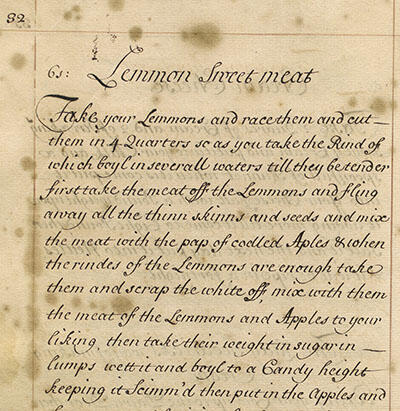 32
61: Lemmon Sweet meat
Take your Lemmons and race them and cut
them in 4 Quarters so as you take the Rind of
which boyl in severall waters till they be tender
first take the meat off the Lemmons and fling
away all the thinn skinns and seeds and mix
the meat with the pap of codled Aples & when
the rindes of the Lemmons are enough take
them and scrap the white off, mix with them
the meat of the Lemmons and Apples to your
liking, then take their weight in sugar in
lumps wett it and boyl to a Candy height
keeping it scimm'd then put in the Apples and